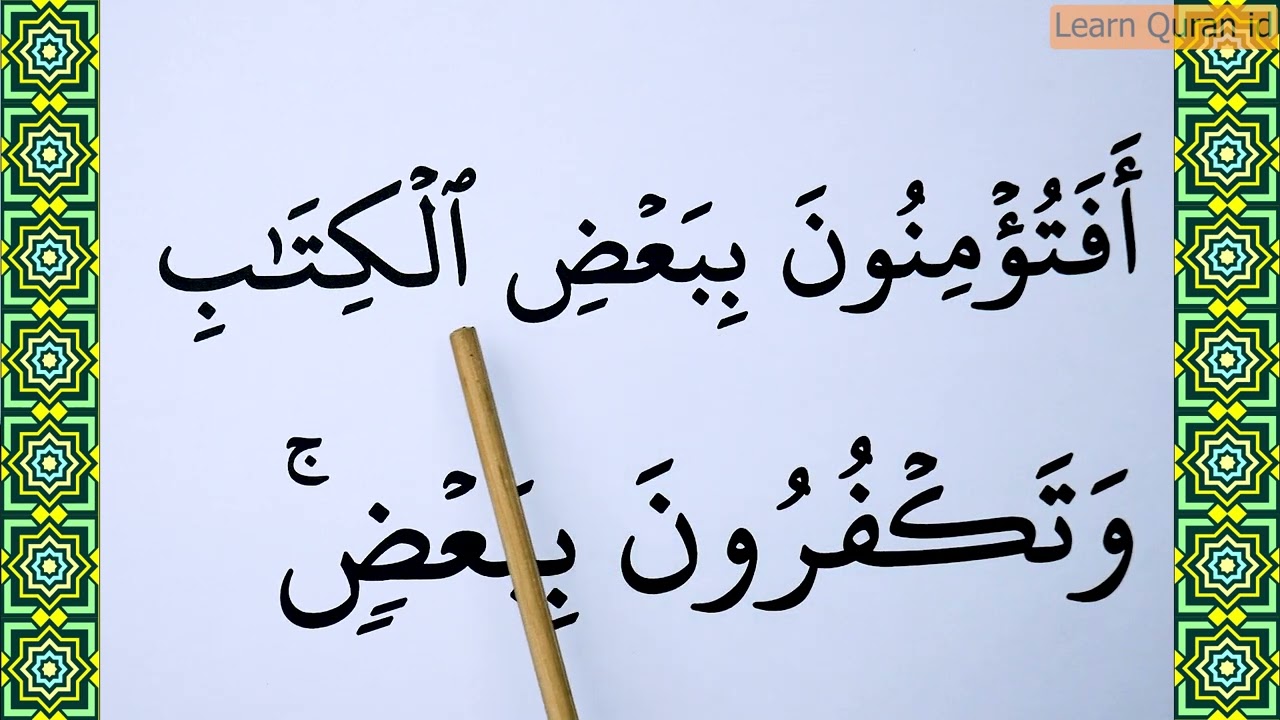 Learn Quran id
أَفَتُؤۡمِنُونَ بِبَعۡضِ ٱلۡكِتَٰبِ
وَتَكۡفُرُونَ بِبَعۡضٖۚ